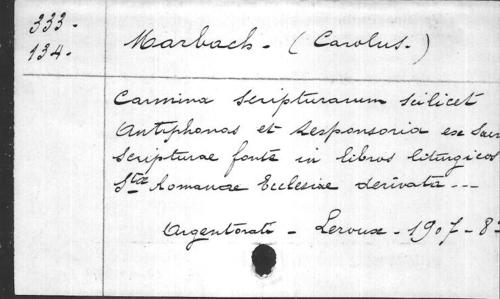 333.
134.
Marbach. (Carolus.)
Carmina Scripturarum scilicet
Antiphonas et Responsoria ex Sacr
Scripturae fonte in libros liturgicos
Stae Romanae Ecclesiae derivata ...
Argentorati - Leroux - 1907 - 8°